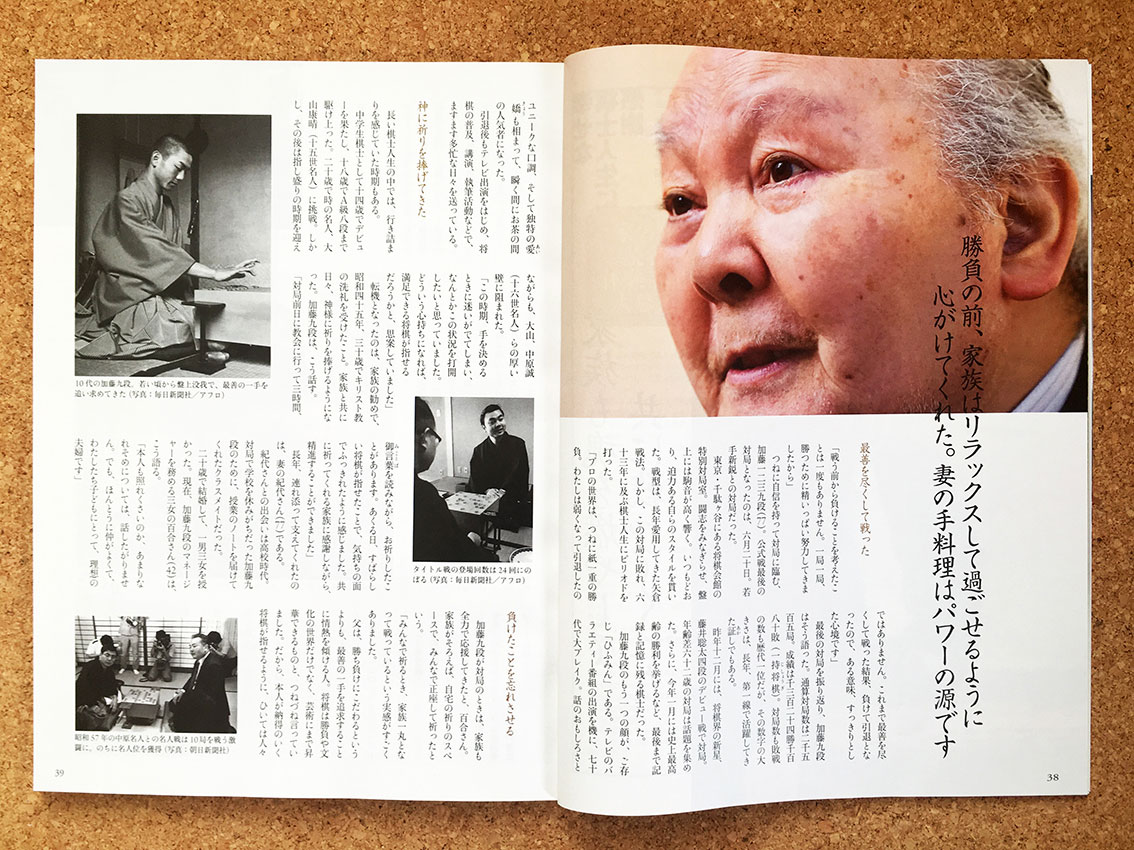 勝負の前、家族はリラックスして過ごせるように
心がけてくれた。妻の手料理はパワーの源です
最善を尽くして戦った
「戦う前から負けることを考えたこ
とは一度もありません。一局一局、
勝つために精いっぱい努力してきま
したから」
つねに自信を持って対局に臨む、
加藤一二三九段(77)。公式戦最後の
対局となったのは、六月二十日。若
手新鋭との対局だった。
東京・千駄ヶ谷にある将棋会館の
特別対局室。闘志をみなぎらせ、盤
上には駒音が高く響く。いつもどお
り、迫力ある自らのスタイルを貫い
た。戦型は、長年愛用してきた矢倉
戦法。しかし、この対局に敗れ、六
十三年に及ぶ棋士人生にピリオドを
打った。
「プロの世界は、つねに紙一重の勝
負。わたしは弱くなって引退したの
ではありません。これまで最善を尽
くして戦った結果、負けて引退とな
ったので、ある意味、すっきりとし
た心境です」
最後の対局を振り返り、加藤九段
はそう語った。通算対局数は二千五
百五局。成績は千三百二十四勝千百
八十敗(一持将棋)。対局数も敗戦
の数も歴代一位だが、その数字の大
きさは、長年、第一線で活躍してき
た証しでもある。
昨年十二月には、将棋界の新星、
藤井聡太四段のデビュー戦で対局。
年齢差六十二歳の対局は話題を集め
た。さらに、今年一月には史上最高
齢の勝利を挙げるなど、最後まで記
録と記憶に残る棋士だった。
加藤九段のもう一つの顔が、ご存
じ「ひふみん」である。テレビのバ
ラエティー番組の出演を機に、七十
代で大ブレイク。話のおもしろさと
38
ユニークな口調、そして独特の愛
嬌も相まって、瞬く間にお茶の間
の人気者になった。
引退後もテレビ出演をはじめ、将
棋の普及、講演、執筆活動などで、
ますます多忙な日々を送っている。
神に祈りを捧げてきた
長い棋士人生の中では、行き詰ま
りを感じていた時期もある。
中学生棋士として十四歳でデビュ
ーを果たし、十八歳でA級八段まで
駆け上った。二十歳で時の名人、大
山康晴(十五世名人)に挑戦。しか
し、その後は指し盛りの時期を迎え
ながらも、大山、中原誠
(十六世名人)らの厚い
壁に阻まれた。
「この時期、手を決める
ときに迷いがでてしまい、
なんとかこの状況を打開
したいと思っていました。
どういう心持ちになれば、
満足できる将棋が指せる
だろうかと、思案していました」
転機となったのは、家族の勧めで、
昭和四十五年、三十歳でキリスト教
の洗礼を受けたこと。家族と共に
日々、神様に祈りを捧げるようにな
った。加藤九段は、こう話す。
「対局前日に教会に行って三時間、
御言葉を読みながら、お祈りしたこ
とがあります。あくる日、すばらし
い将棋が指せたことで、気持ちの面
でふっきれたように感じました。共
に祈ってくれる家族に感謝しながら、
精進することができました」
長年、連れ添って支えてくれたの
は、妻の紀代さん(77)である。
紀代さんとの出会いは高校時代。
対局で学校を休みがちだった加藤九
段のために、授業のノートを届けて
くれたクラスメイトだった。
二十歳で結婚して、一男三女を授
かった。現在、加藤九段のマネージ
ャーを務める三女の百合さん(42)は、
こう語る。
「本人も照れくさいのか、あまりな
れそめについては、話したがりませ
ん。でも、ほんとうに仲がよくて、
わたしたち子どもにとって、理想の
夫婦です」
負けたことを忘れさせる
加藤九段が対局のときは、家族も
全力で応援してきたと、百合さん。
家族がそろえば、自宅の祈りのスペ
ースで、みんなで正座して祈ったと
いう。
「みんなで祈るとき、家族一丸とな
って戦っているという実感がすごく
ありました。
父は、勝ち負けにこだわるという
よりも、最善の一手を追求すること
に情熱を傾ける人。将棋は勝負や文
化の世界だけでなく、芸術にまで昇
華できるものと、つねづね言ってい
ました。だから、本人が納得のいく
将棋が指せるように、ひいては人々
10代の加藤九段。若い頃から盤上没我で、最善の一手を
追い求めてきた(写真:毎日新聞社/アフロ)
タイトル戦の登場回数は24回にの
ぼる(写真:毎日新聞社/アフロ)
昭和57年の中原名人との名人戦は10局を戦う激
闘に。のちに名人位を獲得(写真:朝日新聞社)
39